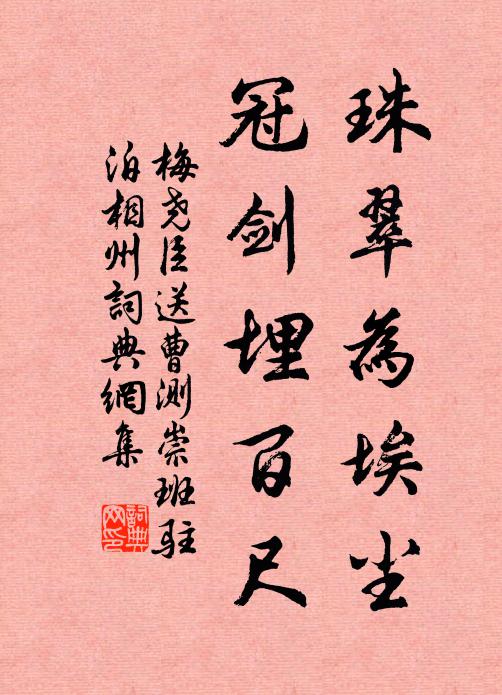 珠翠為埃尘
冠剑埋百尺
梅尧臣送曹测崇班驻
泊相州詞典網集
詞典网印